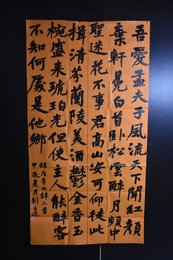 吾愛孟夫子風流天下聞紅顏
棄軒冕白首卧松雲醉月頻中
聖迷花不事君高山安可仰徒此
揖清芬蘭陵美酒鬱金香玉
椀盛来琥珀光但使主人能醉客
不知何處是他鄉
錄唐李白詩二首
甲辰夏月劉